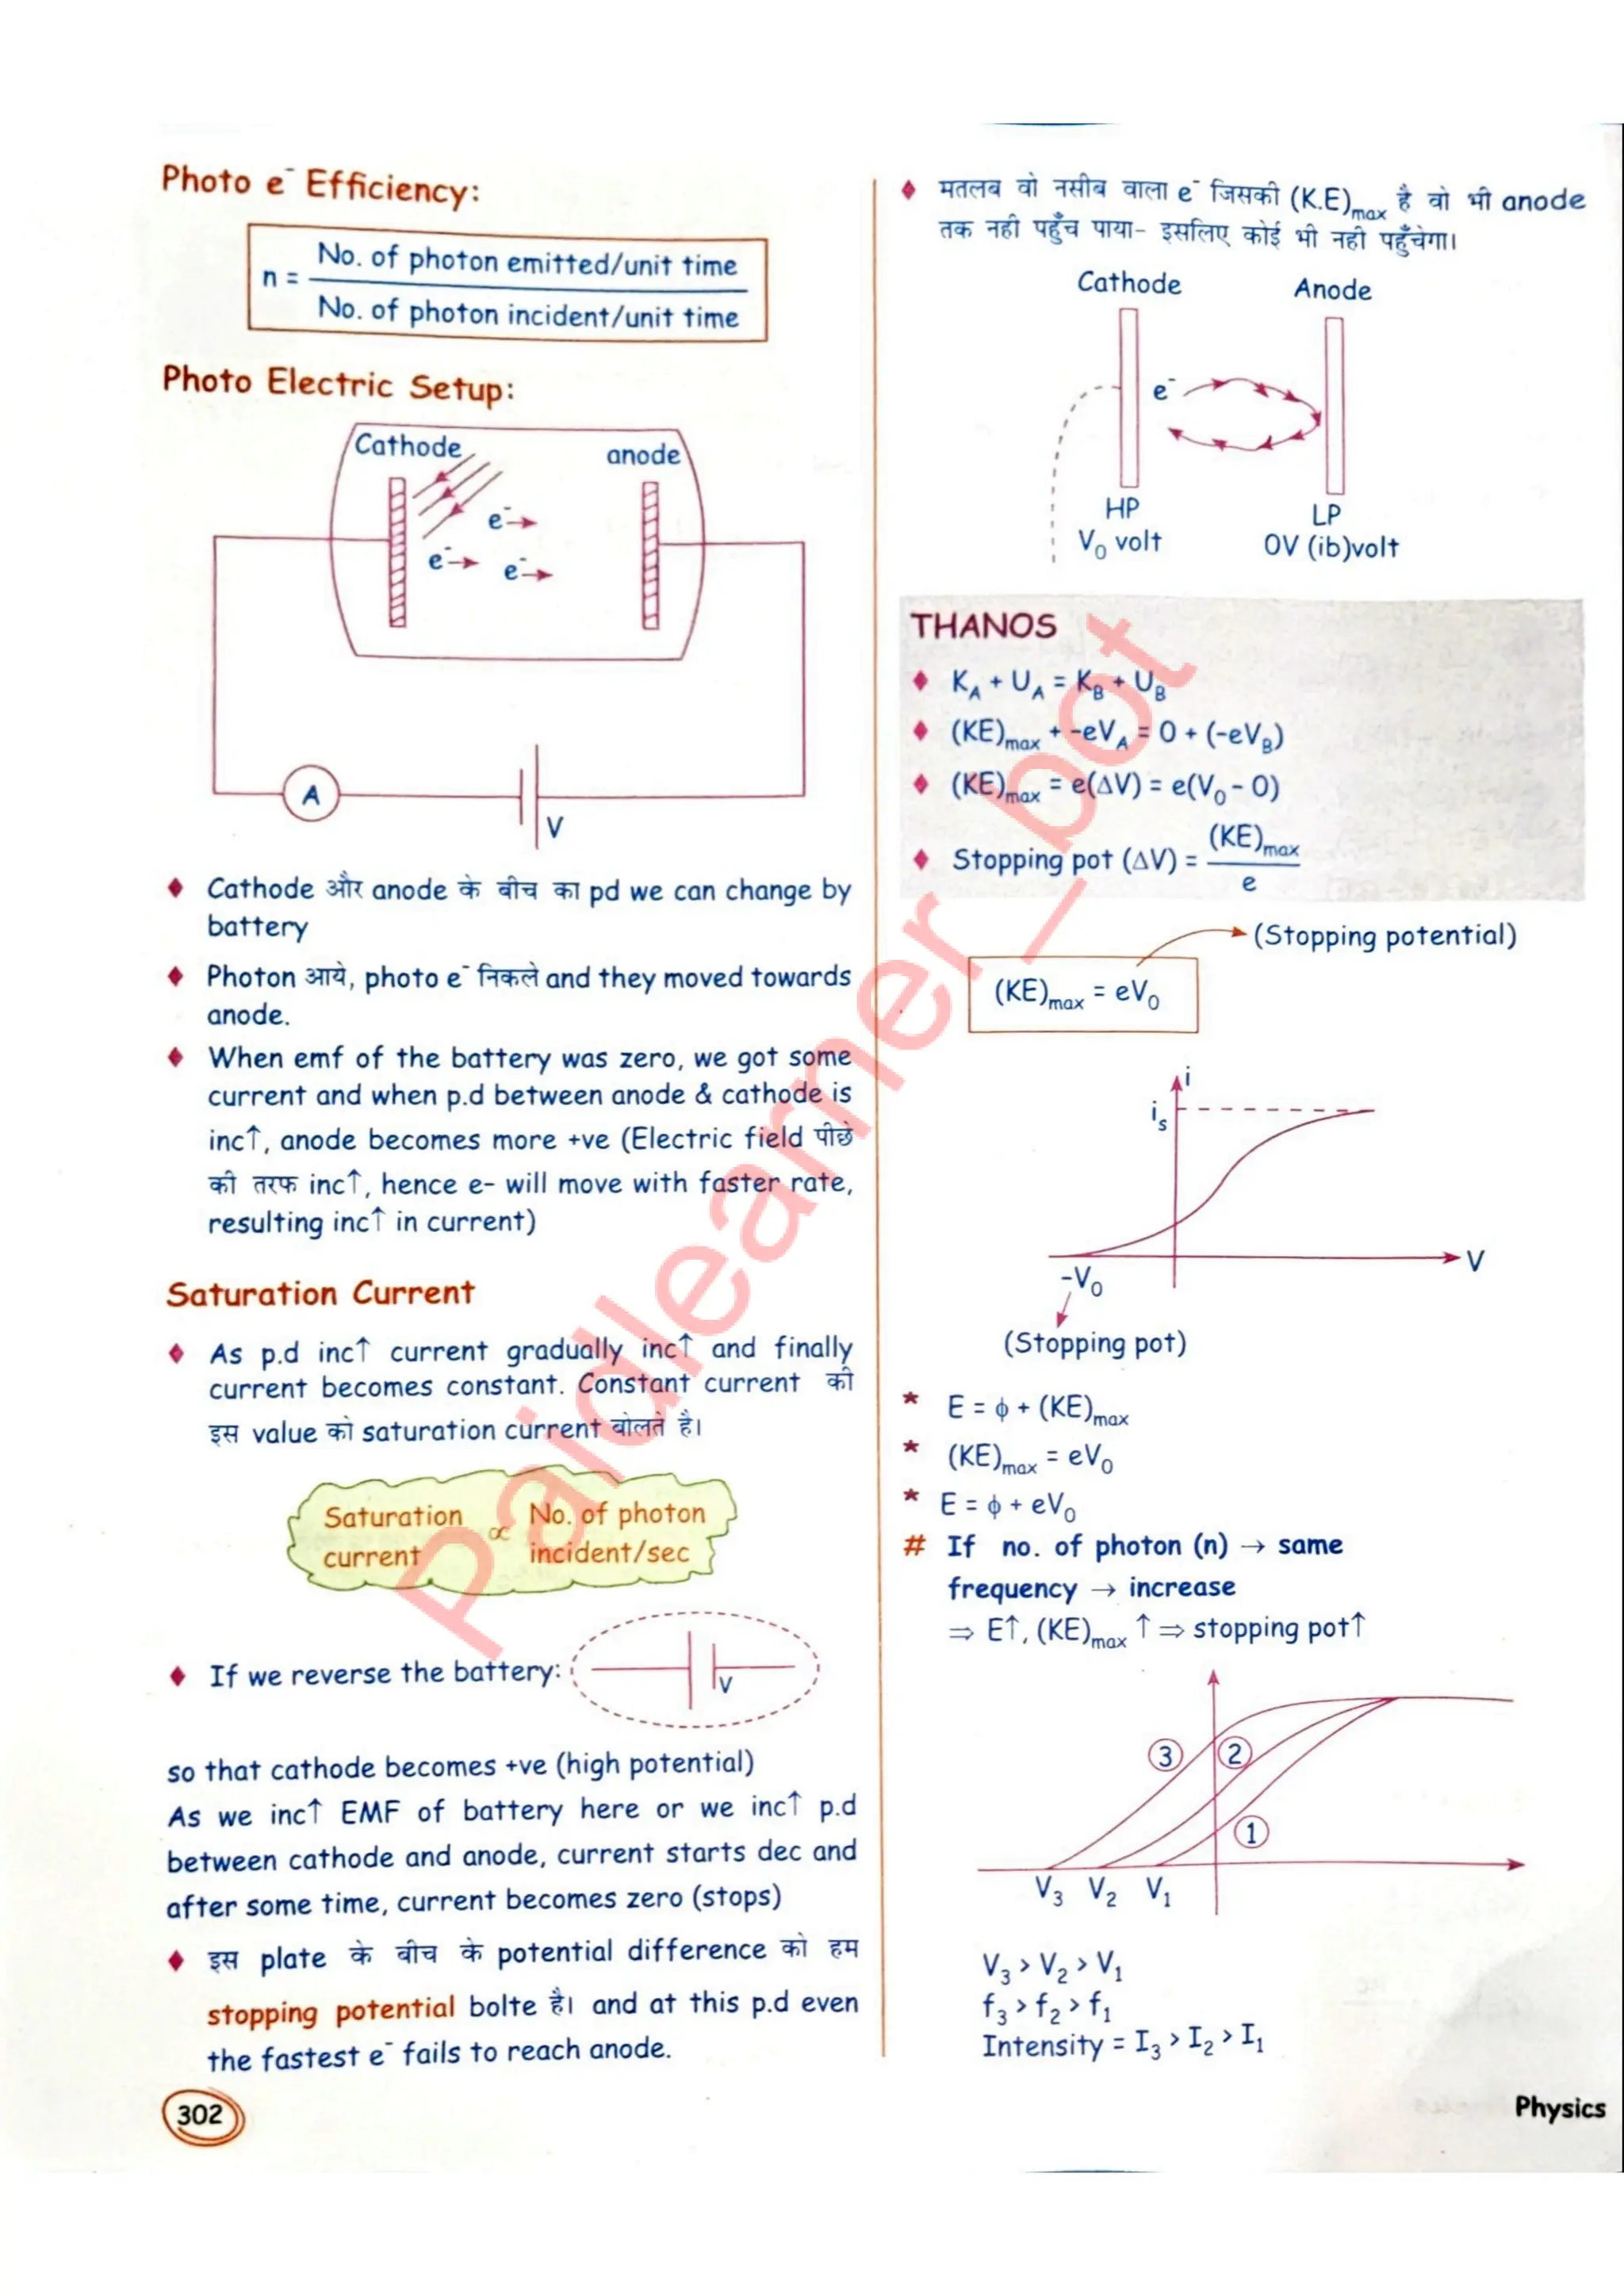 Photo e⁻ Efficiency:
n = No. of photon emitted/unit time
No. of photon incident/unit time
Photo Electric Setup:
Cathode
anode
e⁻
e⁻
e⁻
A
V
Cathode और anode के बीच का pd we can change by
battery
Photon आये, photo e⁻ निकले and they moved towards
anode.
When emf of the battery was zero, we got some
current and when p.d between anode & cathode is
inc↑, anode becomes more +ve (Electric field पीछे
की तरफ inc↑, hence e- will move with faster rate,
resulting inc↑ in current)
Saturation Current
As p.d inc↑ current gradually inc↑ and finally
current becomes constant. Constant current की
इस value को saturation current बोलते है।
Saturation ∝ No. of photon
current incident/sec
If we reverse the battery:
V
so that cathode becomes +ve (high potential)
As we inc↑ EMF of battery here or we inc↑ p.d
between cathode and anode, current starts dec and
after some time, current becomes zero (stops)
इस plate के बीच के potential difference को हम
stopping potential bolte है। and at this p.d even
the fastest e⁻ fails to reach anode.
302
मतलब वो नसीब वाला e⁻ जिसकी (K.E)max है वो भी anode
तक नही पहुँच पाया- इसलिए कोई भी नही पहुँचेगा।
Cathode Anode
e⁻
HP LP
V₀ volt 0V (ib)volt
THANOS
K_A + U_A = K_B + U_B
(KE)max + -eV_A = 0 + (-eV_B)
(KE)max = e(ΔV) = e(V₀ - 0)
Stopping pot (ΔV) = (KE)max
e
(Stopping potential)
(KE)max = eV₀
i
iₛ
V
-V₀
(Stopping pot)
* E = ϕ + (KE)max
* (KE)max = eV₀
* E = ϕ + eV₀
# If no. of photon (n) → same
frequency → increase
⇒ E↑, (KE)max ↑ ⇒ stopping pot↑
3 2
1
V₃ V₂ V₁
V₃ > V₂ > V₁
f₃ > f₂ > f₁
Intensity = I₃ > I₂ > I₁
Physics
Paidlearner_bot